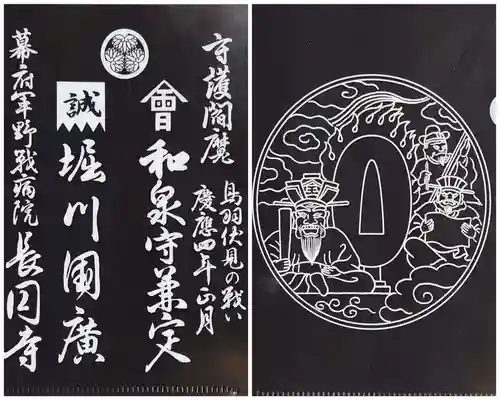 守護閻魔
鳥羽伏見の戦い
慶應四年正月
會
和泉守兼定
誠
堀川國廣
幕府軍野戦病院
長円寺